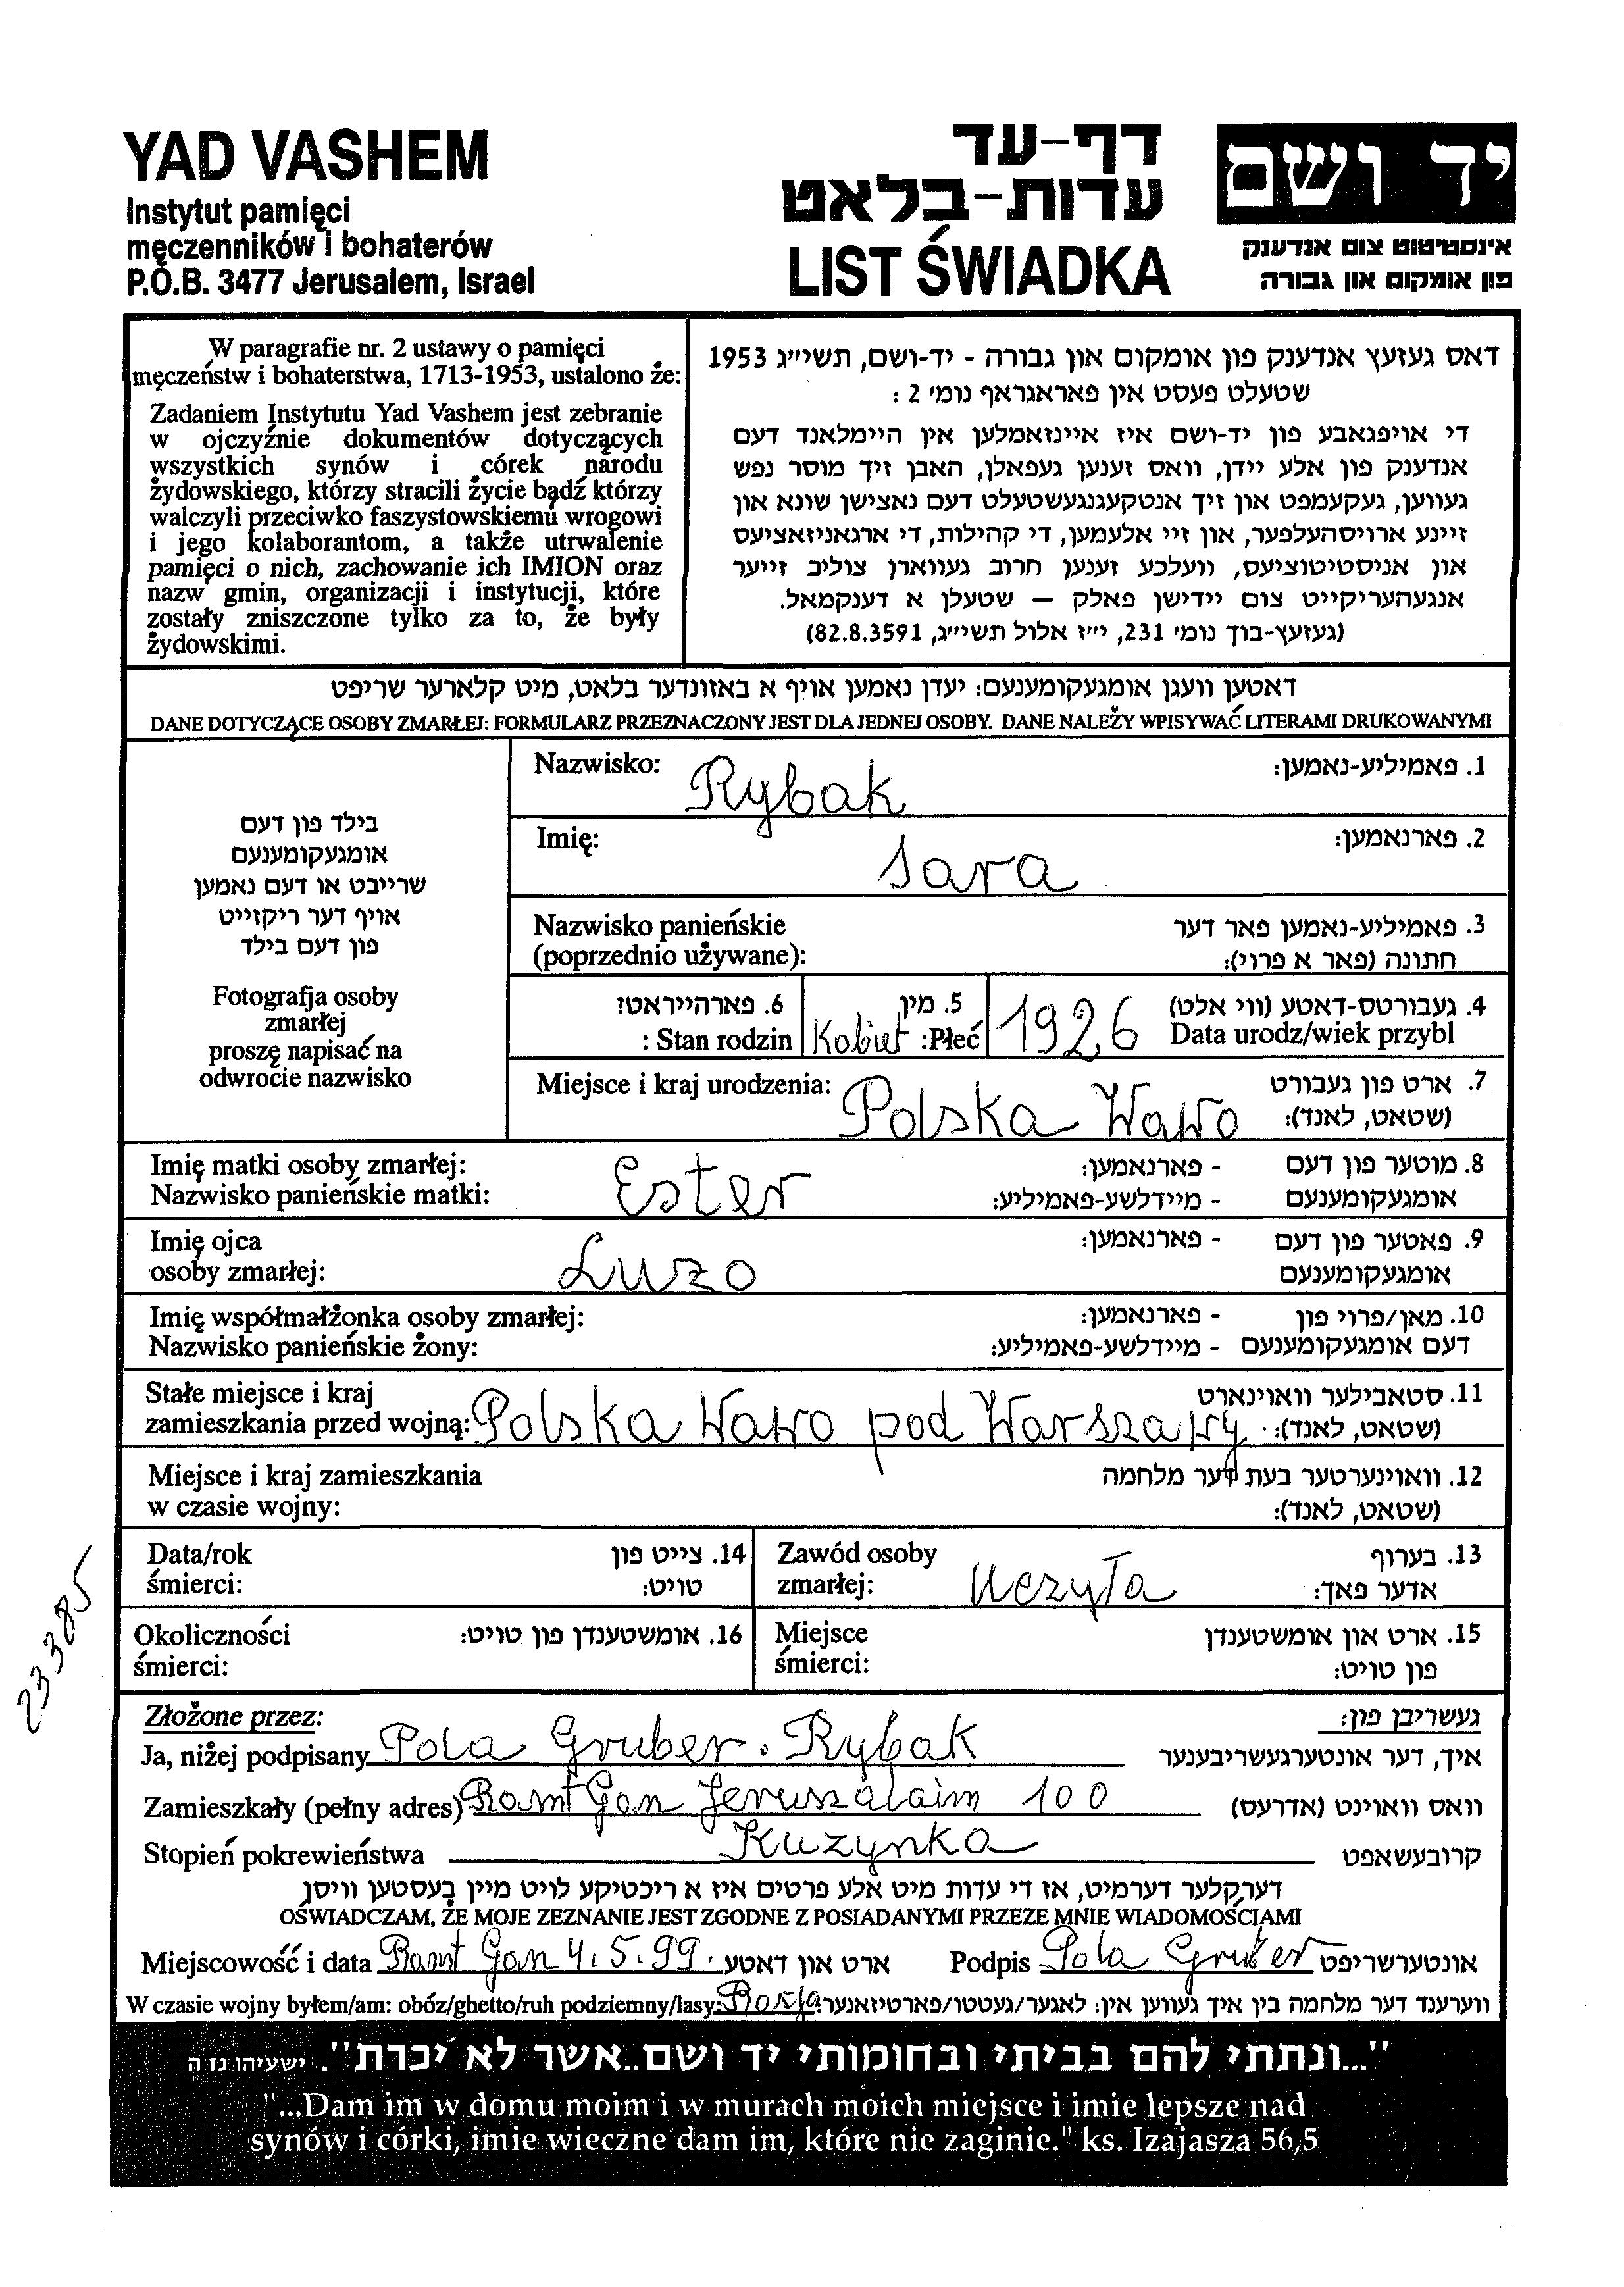 YAD VASHEM
Instytut pamięci
męczenników i bohaterów
P.O.B. 3477 Jerusalem, Israel
דף-עד
עדות-בלאט
LIST ŚWIADKA
יד ושם
אינסטיטוט צום אנדענק
פון אומקום און גבורה
W paragrafie nr. 2 ustawy o pamięci
męczeństw i bohaterstwa, 1713-1953, ustalono że:
Zadaniem Instytutu Yad Vashem jest zebranie
w ojczyźnie dokumentów dotyczących
wszystkich synów i córek narodu
żydowskiego, którzy stracili życie bądź którzy
walczyli przeciwko faszystowskiemu wrogowi
i jego kolaborantom, a także utrwalenie
pamięci o nich, zachowanie ich IMION oraz
nazw gmin, organizacji i instytucji, które
zostały zniszczone tylko za to, że były
żydowskimi.
דאס געזעץ אנדענק פון אומקום און גבורה - יד-ושם, תשי״ג 1953
שטעלט פעסט אין פאראגראף נומ׳ 2 :
די אויפגאבע פון יד-ושם איז איינזאמלען אין היימלאנד דעם
אנדענק פון אלע יידן, וואס זענען געפאלן, האבן זיך מוסר נפש
געווען, געקעמפט און זיך אנטקעגנגעשטעלט דעם נאצישן שונא און
זיינע ארויסהעלפער, און זיי אלעמען, די קהילות, די ארגאניזאציעס
און אניסטיטוציעס, וועלכע זענען חרוב געווארן צוליב זייער
אנגעהעריקייט צום יידישן פאלק — שטעלן א דענקמאל.
(געזעץ-בוך נומ׳ 231, י״ז אלול תשי״ג, 82.8.3591)
דאטען וועגן אומגעקומענעם: יעדן נאמען אויף א באזונדער בלאט, מיט קלארער שריפט
DANE DOTYCZĄCE OSOBY ZMARŁEJ: FORMULARZ PRZEZNACZONY JEST DLA JEDNEJ OSOBY. DANE NALEŻY WPISYWAĆ LITERAMI DRUKOWANYMI
בילד פון דעם
אומגעקומענעם
שרייבט או דעם נאמען
אויף דער ריקזייט
פון דעם בילד
Fotografja osoby
zmarłej
proszę napisać na
odwrocie nazwisko
Nazwisko: Rybak 1. פאמיליע-נאמען:
Imię: Sara 2. פארנאמען:
Nazwisko panieńskie 3. פאמיליע-נאמען פאר דער
(poprzednio używane): חתונה (פאר א פרוי):
6. פארהייראט? 5. מין 4. געבורטס-דאטע (ווי אלט)
: Stan rodzin Kobiet :Płeć 1926 Data urodz/wiek przybl
Miejsce i kraj urodzenia: Polska Wawo 7. ארט פון געבורט
(שטאט, לאנד):
Imię matki osoby zmarłej: Ester - פארנאמען: 8. מוטער פון דעם
Nazwisko panieńskie matki: - מיידלשע-פאמיליע: אומגעקומענעם
Imię ojca Luzo - פארנאמען: 9. פאטער פון דעם
osoby zmarłej: אומגעקומענעם
Imię współmałżonka osoby zmarłej: - פארנאמען: 10. מאן/פרוי פון
Nazwisko panieńskie żony: - מיידלשע-פאמיליע: דעם אומגעקומענעם
Stałe miejsce i kraj 11. סטאבילער וואוינארט
zamieszkania przed wojną: Polska Wawo pod Warszawy (שטאט, לאנד):
Miejsce i kraj zamieszkania 12. וואוינערטער בעת דער מלחמה
w czasie wojny: (שטאט, לאנד):
Data/rok 14. צייט פון Zawód osoby 13. בערוף
śmierci: טויט: zmarłej: Uczyła אדער פאך:
Okoliczności 16. אומשטענדן פון טויט: Miejsce 15. ארט און אומשטענדן
śmierci: śmierci: פון טויט:
Złożone przez: געשריבן פון:
Ja, niżej podpisany Pola Gruber. Rybak איך, דער אונטערגעשריבענער
Zamieszkały (pełny adres) Ramt Gan Jeruszalaim 100 וואס וואוינט (אדרעס)
Stopień pokrewieństwa Kuzynka קרובעשאפט
דערקלער דערמיט, אז די עדות מיט אלע פרטים איז א ריכטיקע לויט מיין בעסטען וויסן
OŚWIADCZAM, ŻE MOJE ZEZNANIE JEST ZGODNE Z POSIADANYMI PRZEZE MNIE WIADOMOŚCIAMI
Miejscowość i data Ramt Gan 4.5.99. ארט און דאטע Podpis Pola Gruber אונטערשריפט
W czasie wojny byłem/am: obóz/ghetto/ruh podziemny/lasy: Rosja ווערענד דער מלחמה בין איך געווען אין: לאגער/געטטו/פארטיזאנער:
23385
"...ונתתי להם בביתי ובחומותי יד ושם..אשר לא יכרת". ישעיהו נז ה
"...Dam im w domu moim i w murach moich miejsce i imie lepsze nad
synów i córki, imie wieczne dam im, które nie zaginie." ks. Izajasza 56,5